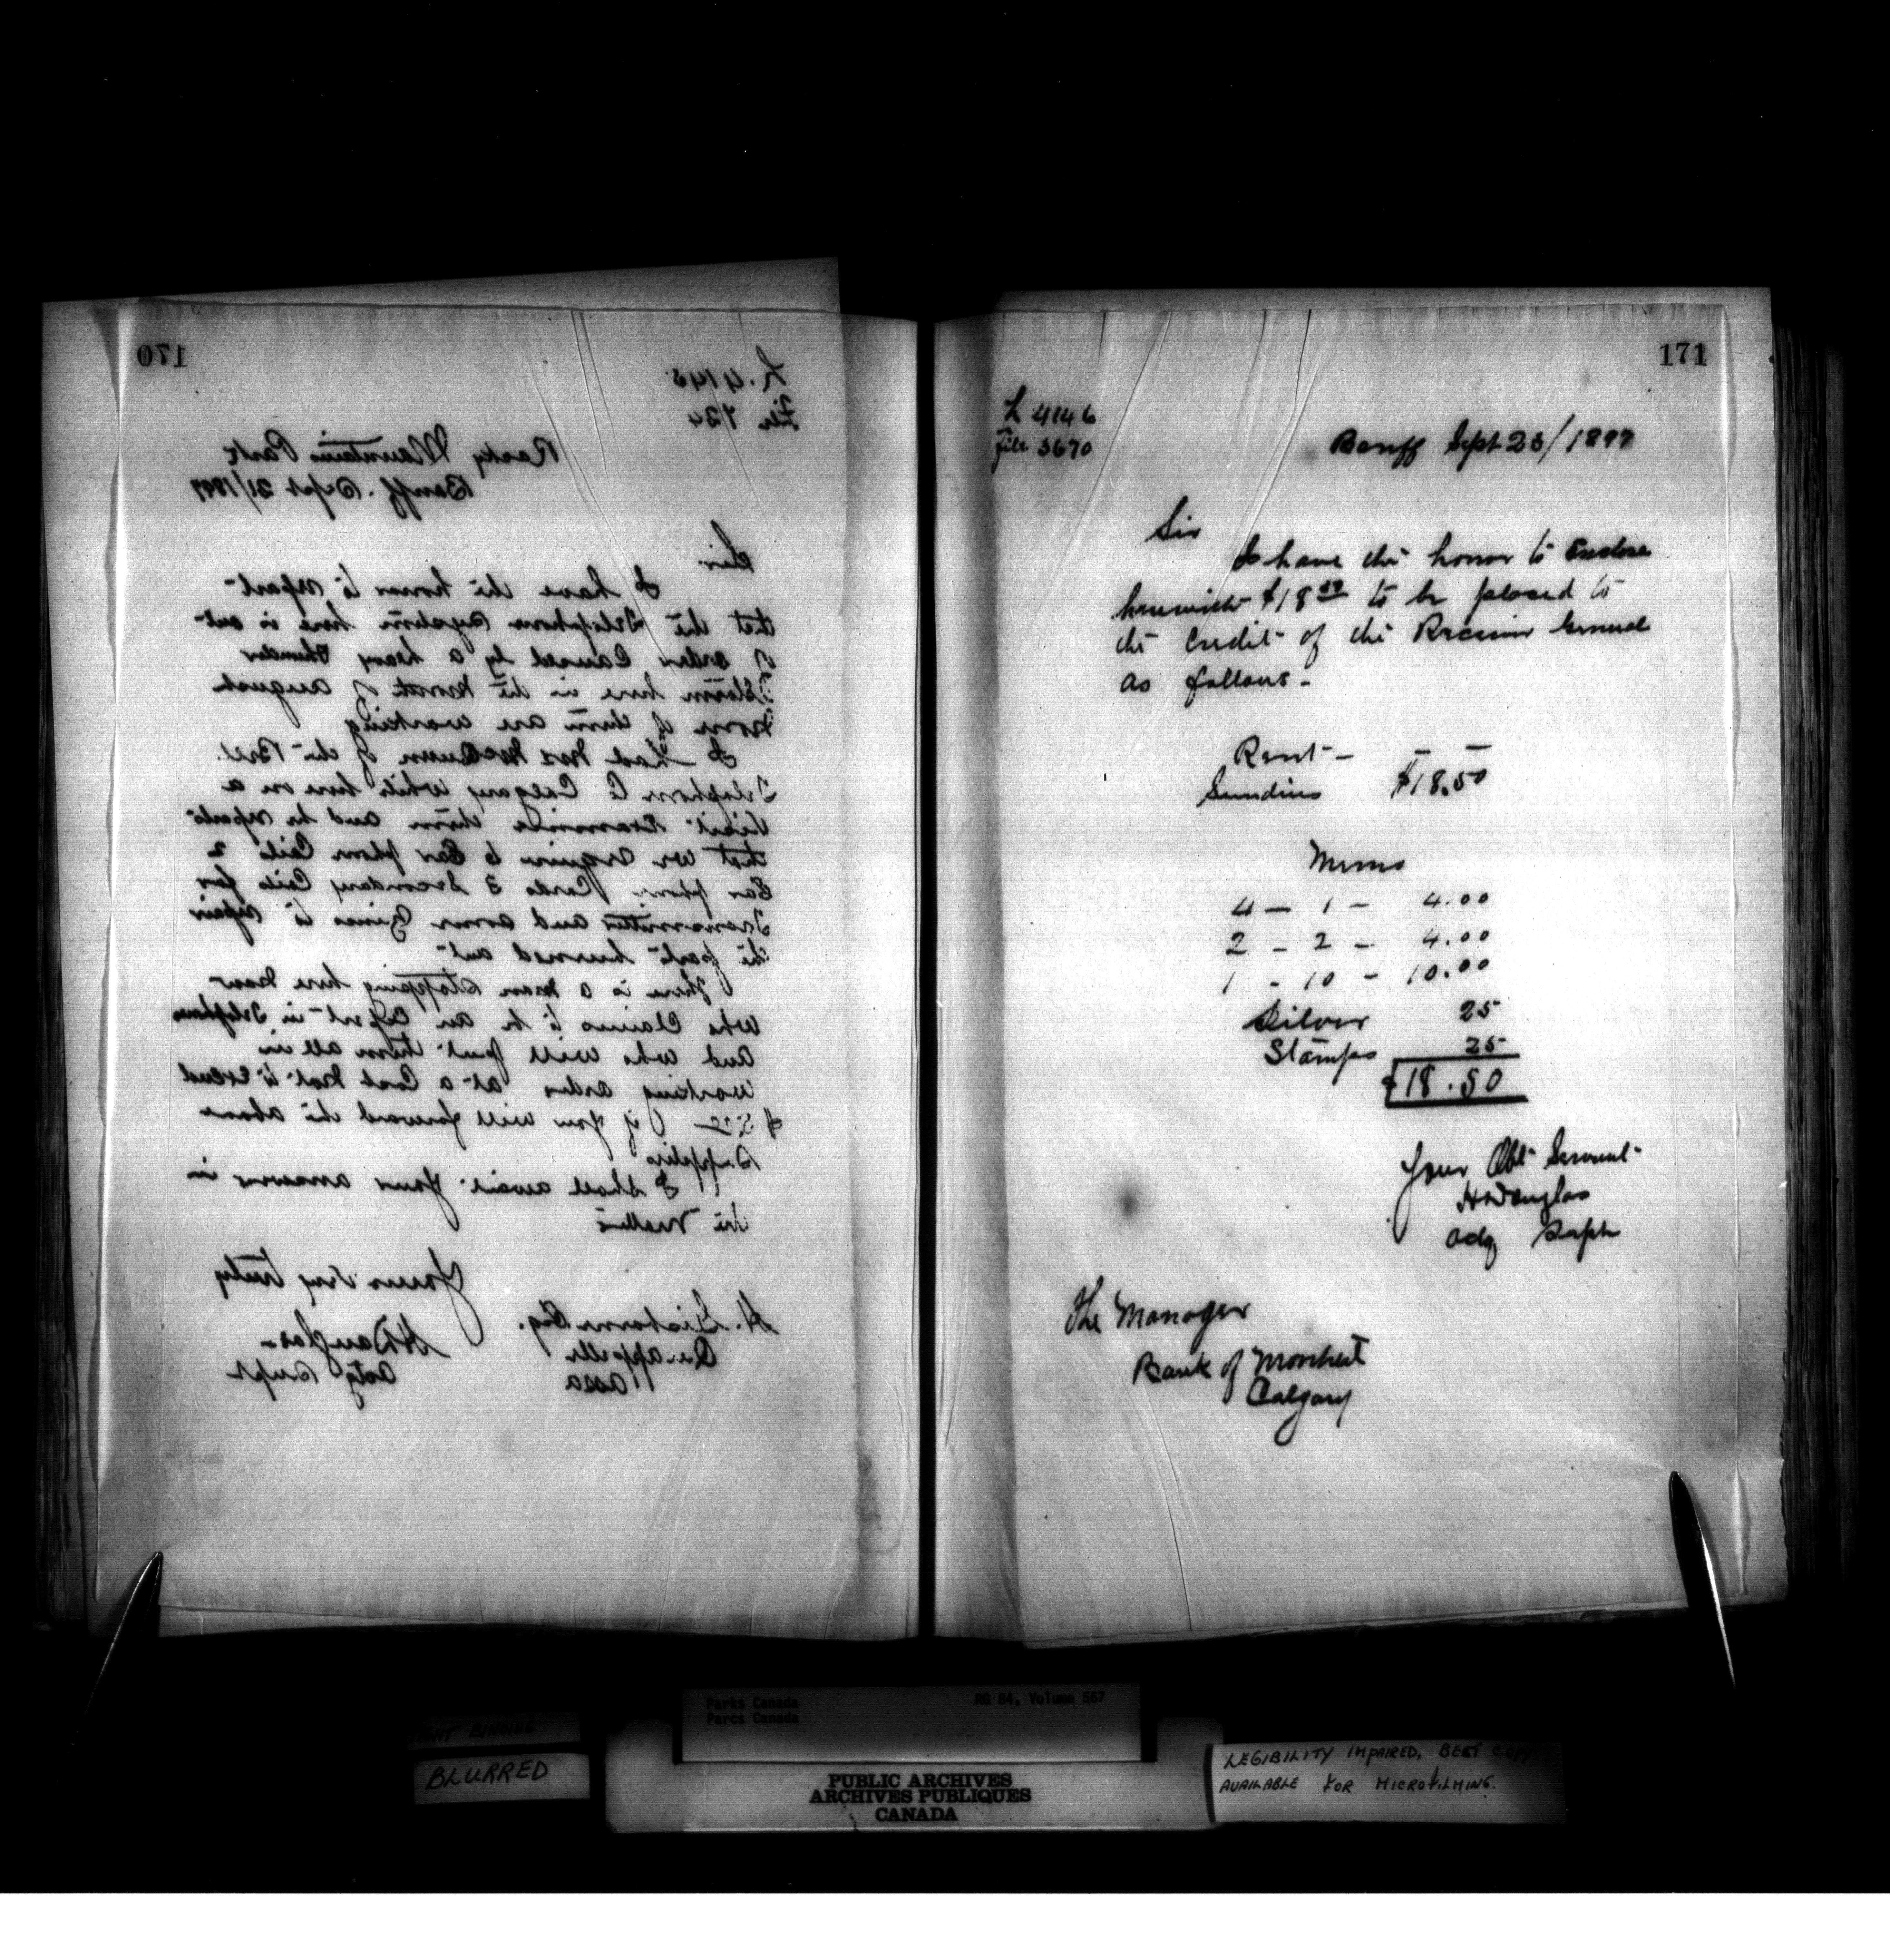 170
L. 4145
File 134
Rocky Mountains Park
Banff. Sept 21/1897
Sir
I have the honor to report
that the Telephone system here is out
of order, Caused by a heavy thunder
Storm here in the month of august
none of them are working
I had Mr McQueen of the Bell
Telephone Co Calgary while here on a
Visit Examine them and he reports
that we require 6 Ear phone Coils 2
Ear phone Cords 3 Secondary Coils for
Transmitter and some Zincs to repair
the part burned out
There is a man stopping here now
who Claims to be an Expert in Telephones
and who will put them all in
working order at a Cost not to Exceed
if you will forward the above
Supplies
I shall await your answer in
the matter
Yours very truly
H Douglas
Actg Supt
H. Esq.
Qu'appelle
Assa
171
L 4146
File 3670
Banff Sept 23/1897
Sir
I have the honor to Enclose
herewith $18 50 to be placed to
the Credit of the Receiver General
as follows -
Rent -
Sundries $18.50
Memo
4 - 1 - 4.00
2 - 2 - 4.00
1 - 10 - 10.00
Silver 25
Stamps 25
$18.50
Your Obt Servant
H Douglas
Actg Supt
The Manager
Bank of Montreal
Calgary
Parks Canada
Parcs Canada
RG 84, Volume 567
BINDING
BLURRED
PUBLIC ARCHIVES
ARCHIVES PUBLIQUES
CANADA
LEGIBILITY IMPAIRED, BEST COPY
AVAILABLE FOR MICROFILMING.